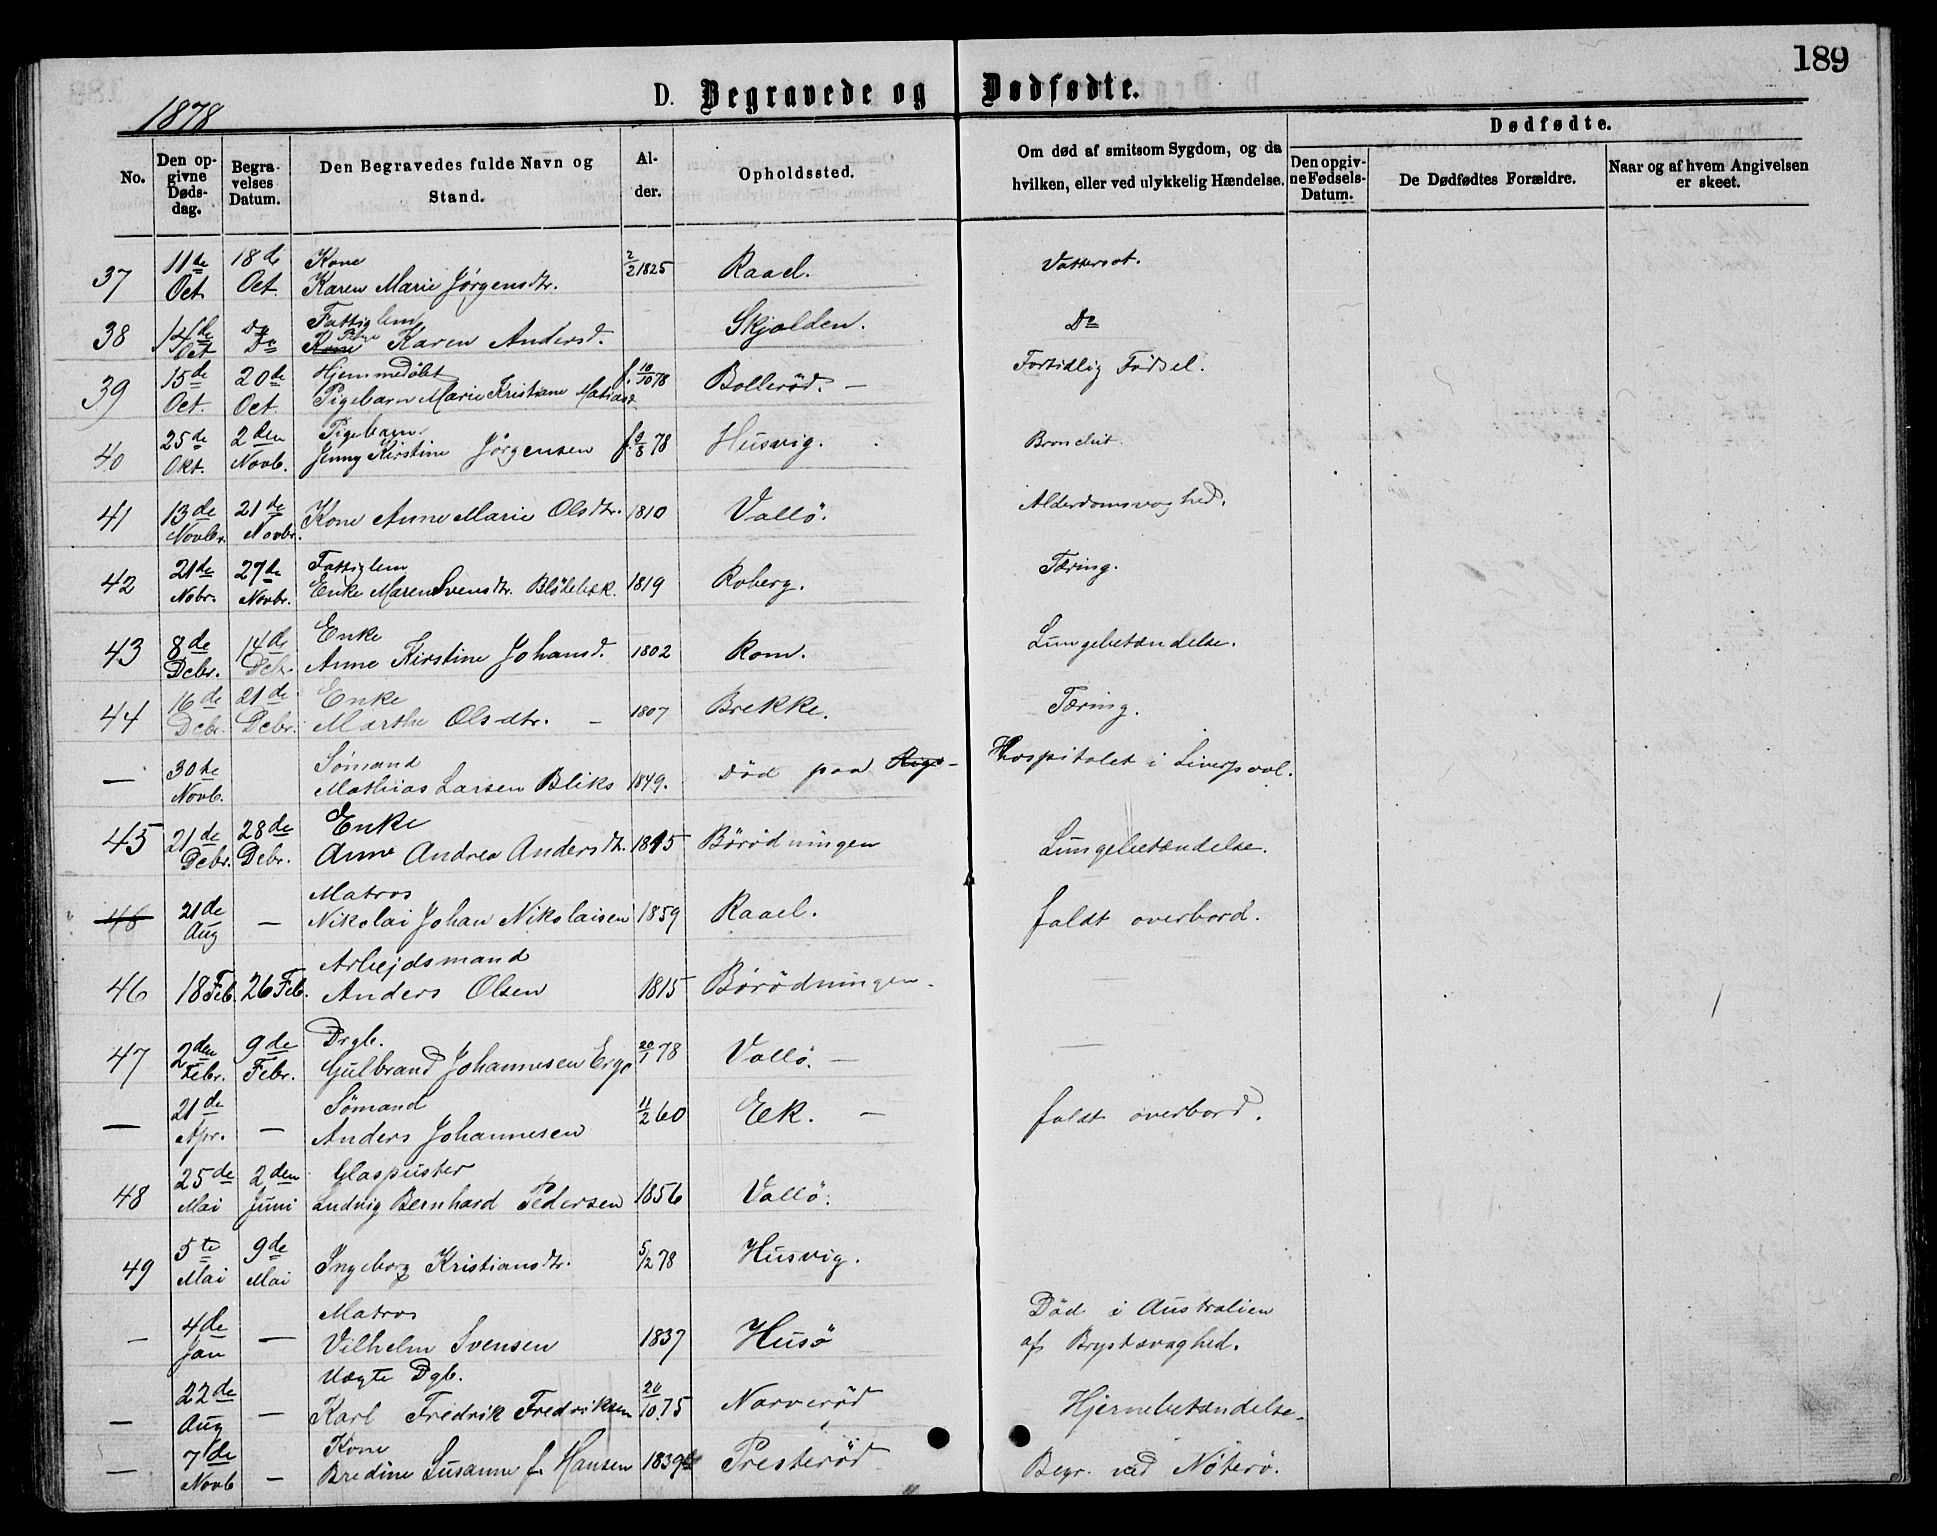 189
1878
D. Begravede og Dødfødte.
No.
Den opgivne Dødsdag.
Begravelses Datum.
Den Begravedes fulde Navn og Stand.
Alder.
Opholdssted.
Om død af smitsom Sygdom, og da hvilken, eller ved ulykkelig Hændelse.
Dødfødte.
Den opgivne Fødsels-Datum.
De Dødfødtes Forældre.
Naar og af hvem Angivelsen er skeet.
37 11de Oct. 18de Oct. Kone Karen Marie Jørgensdtr. 2/2 1825 Raael. Vattersot.
38 14de Oct Do Do Fattiglem Pige Karen Andersd. Skjolden. Do
39 15de Oct. 20de Oct. Hjemmedøbt Pigebarn Marie Kristiane Matiasd. f. 10/10 78 Bollerød. — Fortidlig Födsel.
40 25de Okt. 2den Novb. Pigebarn Jenny Kirstine Jörgensen f. 9/8 78 Husvig. Bronchit.
41 13de Novbr. 21de Novbr. Kone Anne Marie Olsdtr. 1810 Vallö. Alderdomsvaghed.
42 21de Nobr. 27de Novbr. Fattiglem Enke Maren Svensdtr. Blödebæk. 1819 Roberg. Tæring.
43 8de Dcbr. 14de Dcbr. Enke Anne Kirstine Johansd. 1802 Rom. Lungebetændelse.
44 16de Dcbr. 21de Dcbr. Enke Marthe Olsdtr. — 1807 Brekke. Tæring.
— 30te Novb. Sömand Mathias Larsen Bliks 1849. Död paa Hospitalet i Liverpool.
45 21de Dcbr. 28de Debr. Enke Anne Andrea Andersdtr. 1815 Börödningen Lungebetændelse.
46 21de Aug — Matros Nikolai Johan Nikolaisen 1859 Raael. faldt overbord.
46 18 Feb. 26 Feb. Arbejdsmand Anders Olsen 1815 Börödningen.
47 2den Febr. 9de Febr. Drgb. Gulbrand Johannesen 20/1 78 Vallö. —
— 21de Apr. — Sömand Anders Johannesen 11/2 60 Eek. — faldt overbord.
48 25de Mai 2den Juni Glaspuster Ludvig Bernhard Pedersen 1856 Vallö.
49 5te Mai 9de Mai Ingeborg Kristiansdtr. 5/2 78 Husvig.
— 4de Jan — Matros Vilhelm Svensen 1837 Husö Död i Australien af Brystsvaghed.
— 22de Aug — Uægte Dgb. Karl Fredrik Fredriksen 20/10 75 Narverød Hjernebetændelse.
— 7de Novb — Kone Bredine Susanne f. Hansen 1839 Presterød Begr. ved Nöterö.